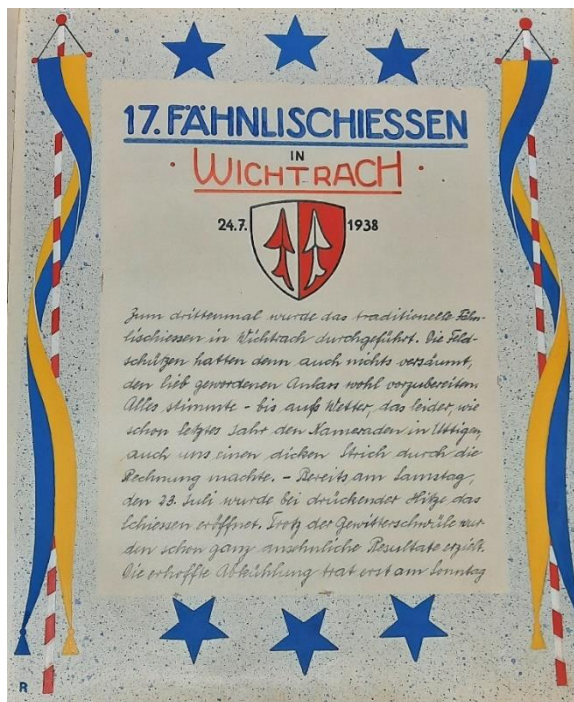 17. FÄHNLISCHIESSEN
IN
· WICHTRACH ·
24.7. 1938
Zum drittenmal wurde das traditionelle Fähn-
lischiessen in Wichtrach durchgeführt. Die Feld-
schützen hatten denn auch nichts versäumt,
den lieb gewordenen Anlass wohl vorzubereiten.
Alles stimmte – bis aufs Wetter, das leider, wie
schon letztes Jahr den Kameraden in Uttigen,
auch uns einen dicken Strich durch die
Rechnung machte. – Bereits am Samstag,
den 23. Juli wurde bei drückender Hitze das
Schiessen eröffnet. Trotz der Gewitterschwüle wur
den schon ganz ansehnliche Resultate erzielt.
Die erhoffte Abkühlung trat erst am Sonntag
R